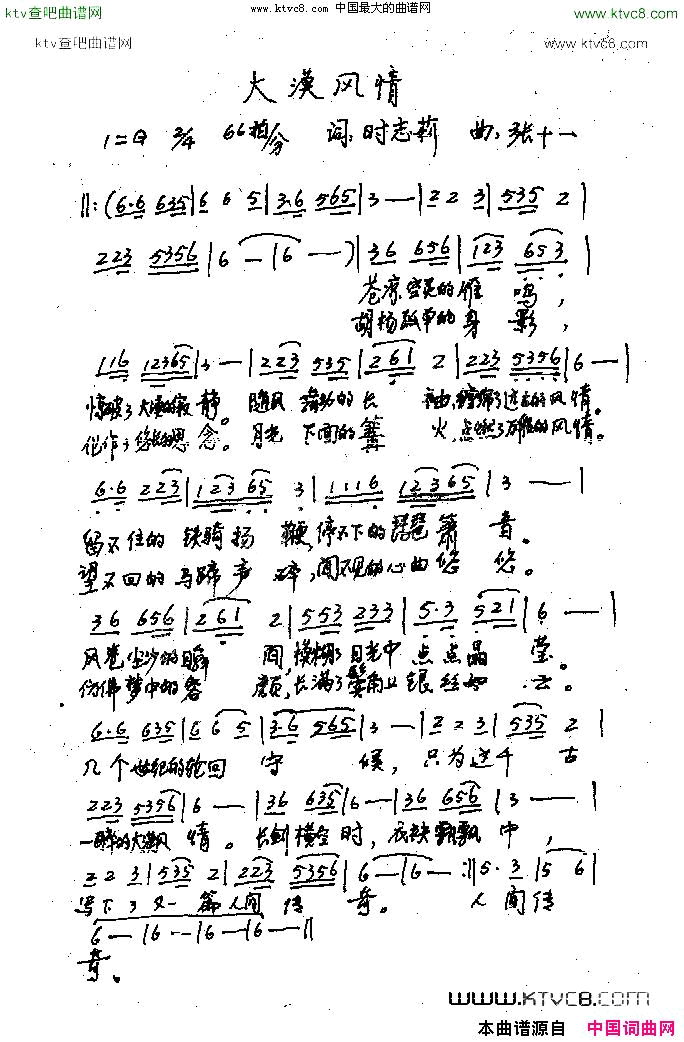 ktv查吧曲谱网 www.ktvc8.com 中国最大的曲谱网 www.ktvc8.com
ktv查吧曲谱网 www.ktvc8.com
大漠风情
1=G 2/4 66拍/分 词:时志莉 曲:张十一
‖:(6·6 635|6 6 5|3·6 565|3 —|2 2 3|535 2|
223 5356|6 —|6 —)|36 656|123 653|
苍凉空灵的雁 鸣,
胡杨孤单的身 影,
116 12365|3 —|223 535|261 2|223 5356|6 —|
惊破了大漠的寂 静。随风 舞动的长 袖,缠绵了远古的风情。
化作了悠长的思 念。月光 下面的篝 火,点燃了 的风情。
6·6 223|12365 3|1116 12365|3 —|
留不住的 铁骑扬 鞭,停不下的琵琶箫 音。
望不回的马蹄声 碎,闻不见的心曲悠 悠。
36 656|261 2|553 233|5·3 521|6 —|
风卷尘沙的瞬 间,模糊了月光中 点点晶 莹。
仿佛梦中的容 颜,长满了鬓角上银丝如 云。
6·6 635|6 6 5|3·6 565|3 —|2 2 3|535 2|
几个世纪的轮回 守 候, 只为这千 古
223 5356|6 —|36 635|6 —|36 656|3 —|
一瞬的大漠风 情。长剑横空时,衣袂飘飘中,
2 2 3|535 2|223 5356|6 —|6 —:‖5·3|5 6|
写下了又一篇人间传 奇。 人间传
6 —|6 —|6 —|6 —‖
奇。
www.KTVC8.com
本曲谱源自 中国词曲网